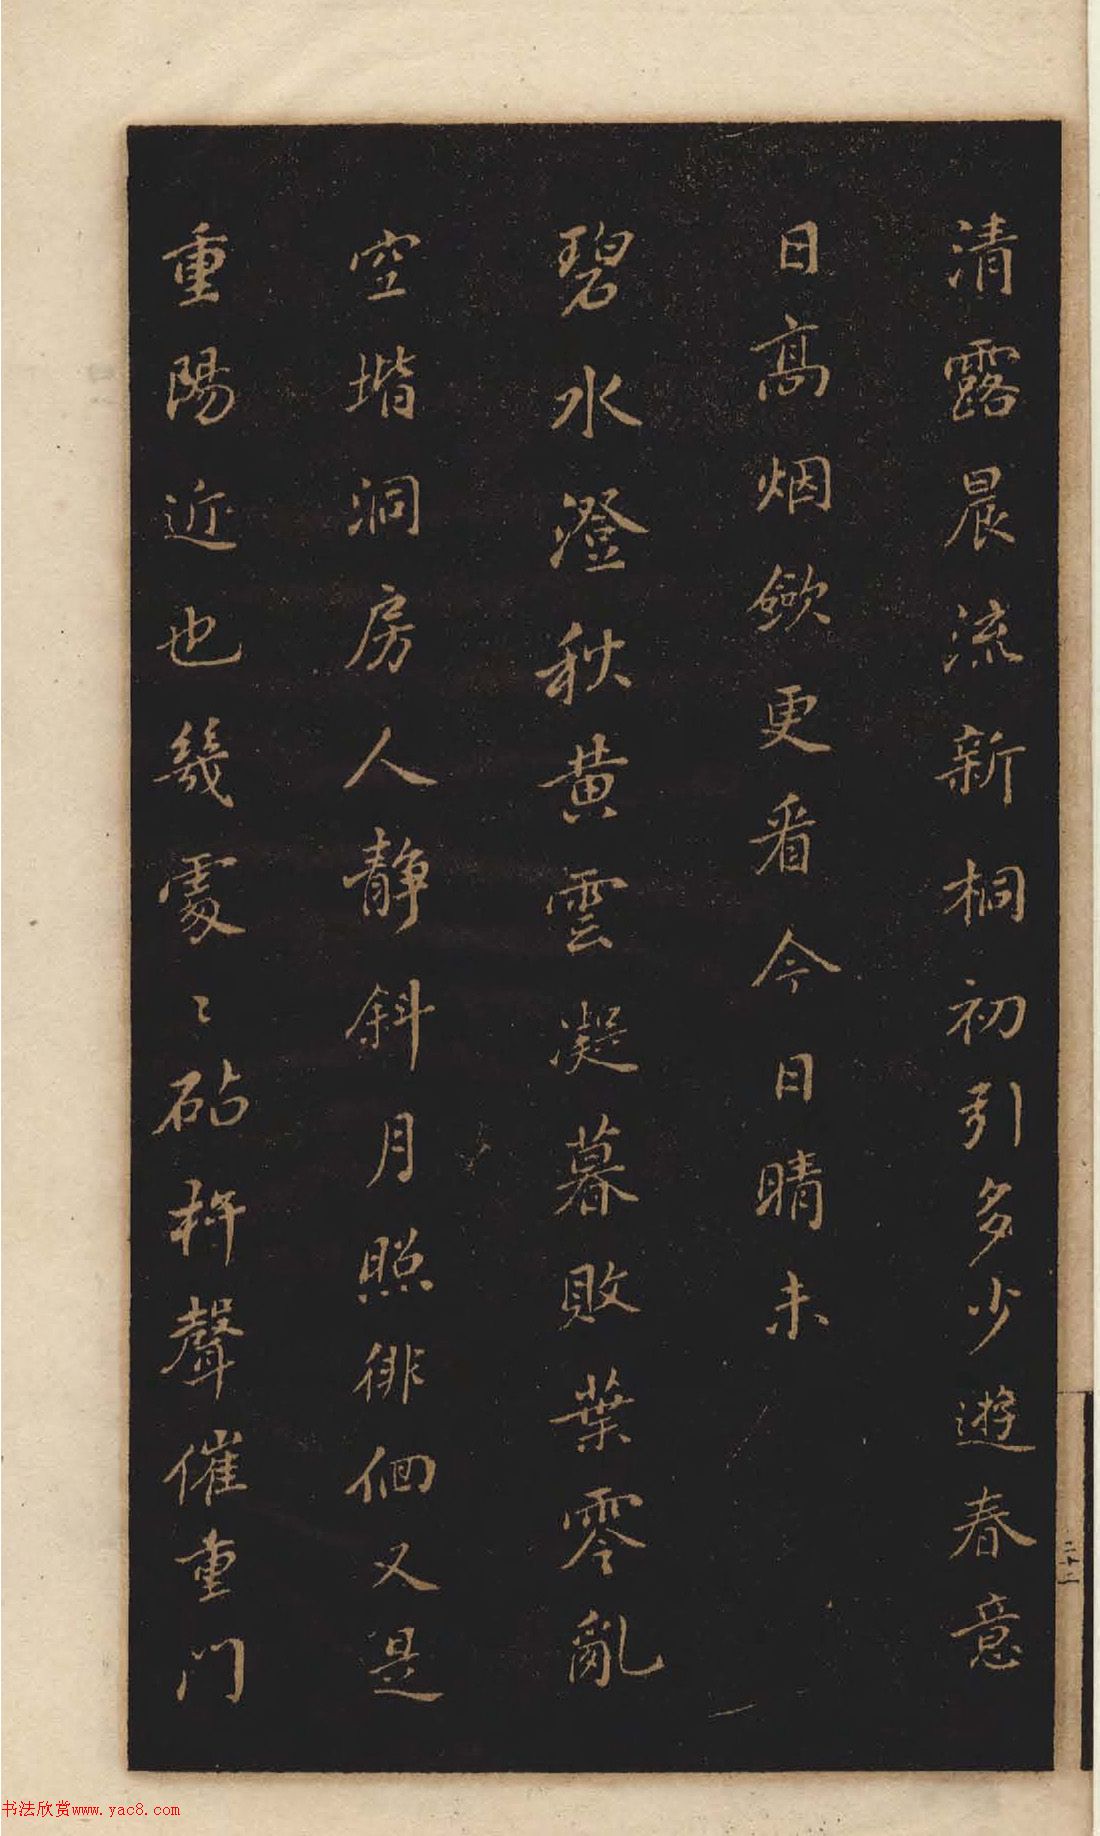 清露晨流新桐初引多少遊春意
日高烟斂更看今日晴未
碧水澄秋黄雲凝暮敗葉零亂
空堦洞房人靜斜月照徘徊又是
重陽近也幾處〻砧杵聲催重門
二十二
书法欣赏www.yac8.com